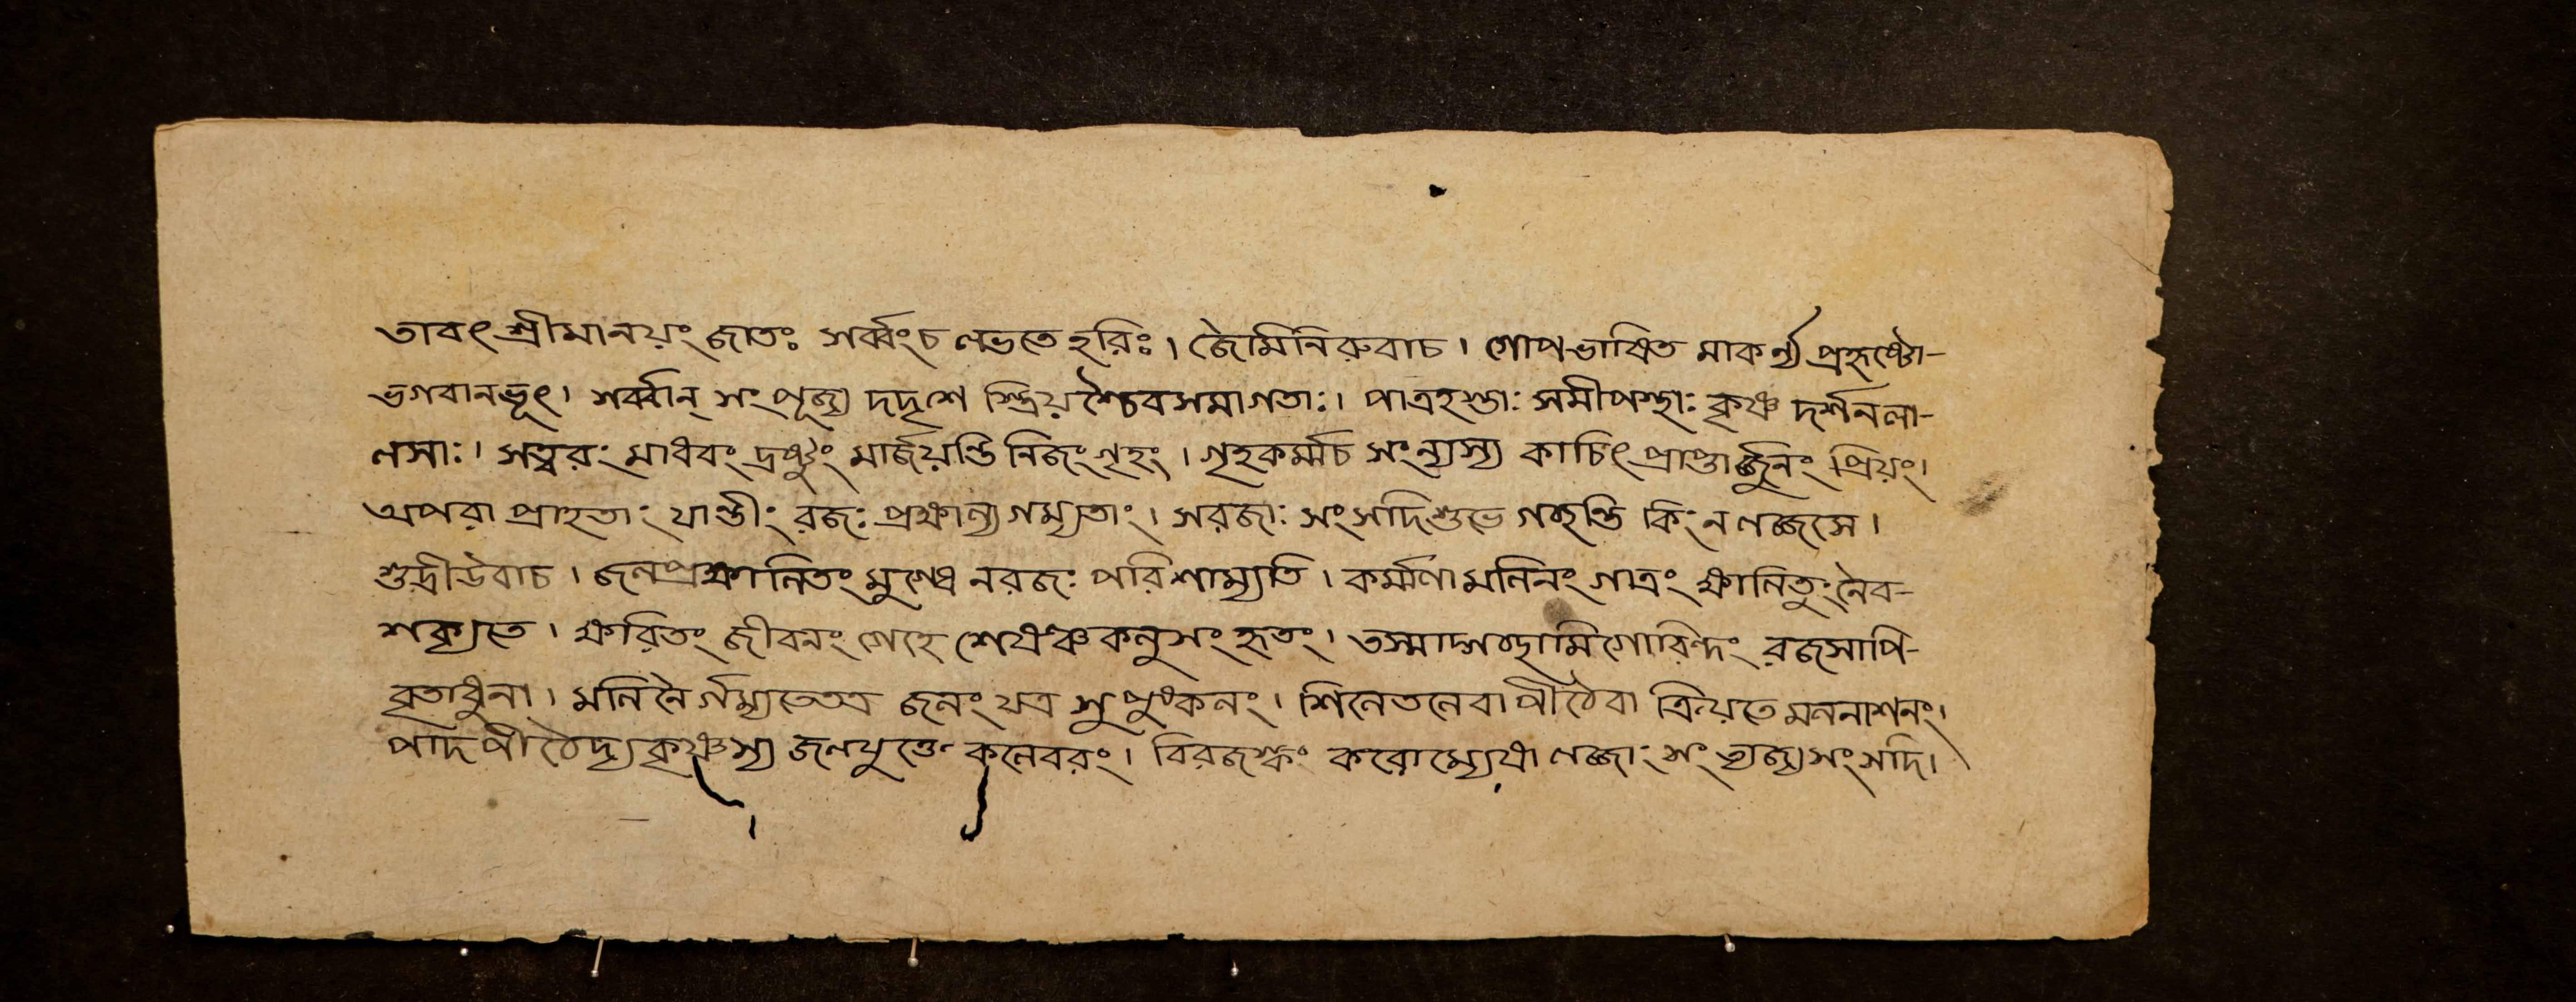 তাবৎ শ্রীমানয়ং জাতঃ সর্ব্বংচ লভতে হরিঃ। জৈমিনিরুবাচ। গোপভাষিত মাকর্ণ্য প্রহৃষ্টো-
ভগবানভূৎ। সর্ব্বান্ সংপূজ্য দদৃশে স্ত্রিয়শ্চৈবসমাগতাঃ। পাত্রহস্তাঃ সমীপস্থাঃ কৃষ্ণ দর্শনলা-
লসাঃ। সত্বরং মাধবং দ্রষ্টুং মার্জয়ন্তি নিজংগৃহং। গৃহকর্ম্মচ সংন্যস্য কাচিৎ প্রাপ্তার্জুনং প্রিয়ং।
অপরা প্রাহতাং যান্তীং রজঃ প্রক্ষাল্য গম্যতাং। সরজাঃ সংসদিশুভে গচ্ছন্তি কিং ন লজ্জসে।
শুদ্রীউবাচ। জলপ্রক্ষালিতং মুগ্ধে নরজঃ পরিশাম্যতি। কর্ম্মণামলিনং গাত্রং ক্ষালিতুং নৈব-
শক্যতে। ক্ষরিতং জীবনং গেহে শেষঞ্চ কলুসং হৃতং। তস্মাদ্গচ্ছামিগোবিন্দং রজসাপি-
বৃতাধুনা। মলিনৈর্গম্যতেতত্র জলং যত্র সুপুষ্কলং। শিলেতলেবাপীঠেবা ক্রিয়তে মলনাশনং।
পাদপীঠেদ্যকৃষ্ণস্য জলযুক্তে কলেবরং। বিরজস্কং করোম্যেষা লজ্জাং সংত্যজ্যসংসদি।